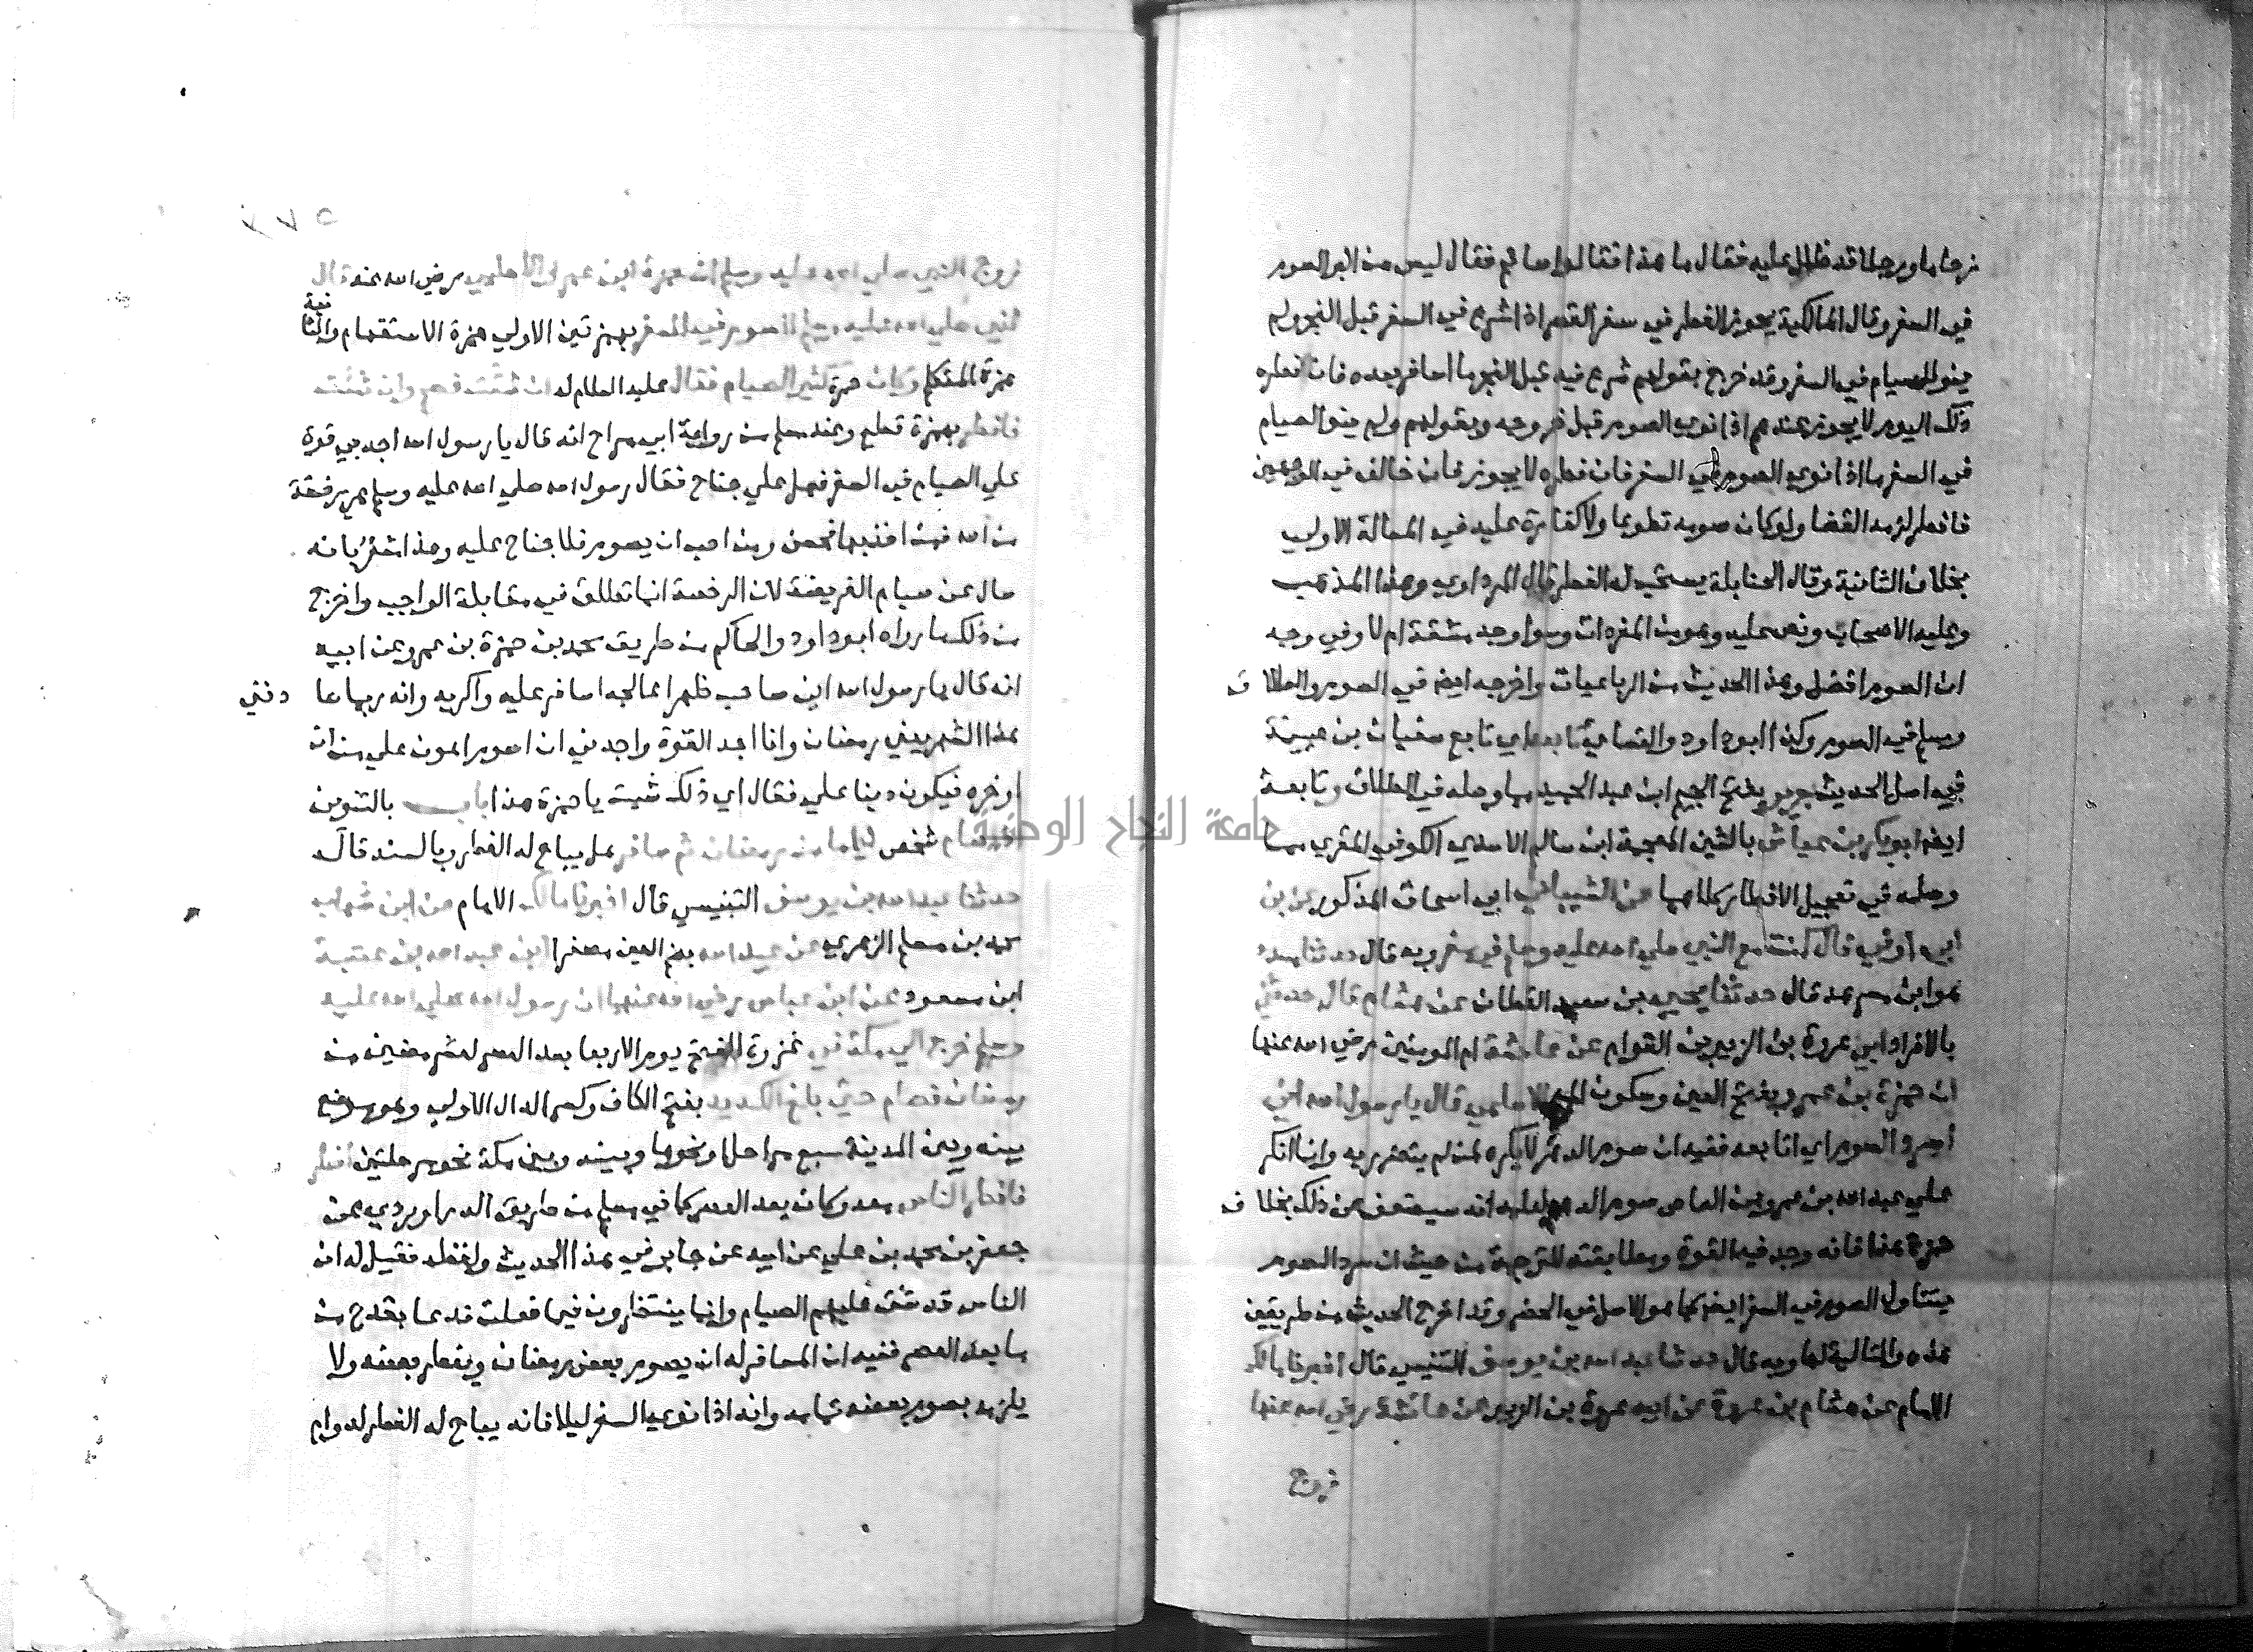 زحاما ورجلا قد ظلل عليه فقال ما هذا فقالوا صائم فقال ليس من البر الصوم
في السفر وقال المالكية يجوز الفطر في سفر القصر اذا شرع في السفر قبل الفجر ولم
ينو الصيام في السفر وقد خرج بقولهم شرع فيه قبل الفجر ما اذا سافر بعده فان فطره
ذلك اليوم لا يجوز عندهم اذا نوي الصوم قبل خروجه وبقولهم ولم ينو الصيام
في السفر ما اذا نوي الصوم في السفر فان فطره لا يجوز فان خالف في الوجهين
فافطر لزمه القضا ولو كان صومه تطوعا ولا كفارة عليه في المسالة الاولي
بخلاف الثانية وقال الحنابلة يستحب له الفطر قال المرداوي وهذا المذهب
وعليه الاصحاب ونص عليه وهو من المفردات وسوا وجد مشقة ام لا وفي وجه
ان الصوم افضل وهذا الحديث من الرباعيات واخرجه ايضا في الصوم والطلاق
ومسلم في الصوم وكذا ابو داود والنساي تابعه اي تابع سفيان بن عيينة
في اصل الحديث جرير بفتح الجيم ابن عبد الحميد مما وصله في الطلاق وتابعه
ايضا ابو بكر بن عياش بالشين المعجمة ابن سالم الاسدي الكوفي المقري مما
وصله في تعجيل الافطار كلاهما عن الشيباني ابي اسحاق المذكور عن بن
ابي اوفي قال كنت مع النبي صلي الله عليه وسلم في سفر وبه قال حدثنا مسدد
هو ابن مسرهد قال حدثنا يحيي بن سعيد القطان عن هشام قال حدثني
بالافراد ابي عروة بن الزبير بن العوام عن عائشة ام المومنين رضي الله عنها
ان حمزة بن عمرو بفتح العين وسكون الميم الاسلمي قال يا رسول الله اني
اسرد الصوم اي اتابعه ففيه ان صوم الدهر لا يكره لمن لم يتضرر به وانما انكر
علي عبد الله بن عمرو بن العاص صوم الدهر لعلمه انه سيضعف عن ذلك بخلاف
حمزة هذا فانه وجد فيه القوة ومطابقته للترجمة من حيث ان سرد الصوم
يتناول الصوم في السفر ايضا كما هو الاصل في الحضر وقد اخرج الحديث من طريقين
هذه والتالية لها وبه قال حدثنا عبد الله بن يوسف التنيسي قال اخبرنا مالك
الامام عن هشام بن عروة عن ابيه عروة بن الزبير عن عائشة رضي الله عنها
زوج
زوج النبي صلي الله عليه وسلم ان حمزة ابن عمرو الاسلمي رضي الله عنه قال
للنبي صلي الله عليه وسلم ااصوم في السفر بهمزتين الاولي همزة الاستفهام والثانية
همزة المتكلم وكان حمزة كثير الصيام فقال عليه السلام له ان شئت فصم وان شئت
فافطر بهمزة قطع وعند مسلم من رواية ابي مراوح انه قال يا رسول الله اجد بي قوة
علي الصيام في السفر فهل علي جناح فقال رسول الله صلي الله عليه وسلم هي رخصة
من الله فمن اخذ بها فحسن ومن احب ان يصوم فلا جناح عليه وهذا اشعر بانه
سال عن صيام الفريضة لان الرخصة انما تطلق في مقابلة الواجب واخرج
من ذلك ما رواه ابو داود والحاكم من طريق محمد بن حمزة بن عمرو عن ابيه
انه قال يا رسول الله اني صاحب ظهر اعالجه اسافر عليه واكريه وانه ربما صادفني
هذا الشهر يعني رمضان وانا اجد القوة واجدني ان اصوم اهون علي من ان
اوخره فيكون دينا علي فقال اي ذلك شيت يا حمزة هذا باب بالتنوين
اذا صام شخص اياما من رمضان ثم سافر هل يباح له الفطر وبالسند قال
حدثنا عبد الله بن يوسف التنيسي قال اخبرنا مالك الامام عن ابن شهاب
محمد بن مسلم الزهري عن عبيد الله بضم العين مصغرا ابن عبد الله بن عتبة
ابن مسعود عن ابن عباس رضي الله عنهما ان رسول الله صلي الله عليه
وسلم خرج الي مكة في غزوة الفتح يوم الاربعا بعد العصر لعشر مضين من
رمضان فصام حتي بلغ الكديد بفتح الكاف وكسر الدال الاولي وهو موضع
بينه وبين المدينة سبع مراحل او نحوها وبينه وبين مكة نحو مرحلتين افطر
فافطر الناس معه وكان بعد العصر كما في مسلم من طريق الدراوردي عن
جعفر بن محمد بن علي عن ابيه عن جابر في هذا الحديث ولفظه فقيل له ان
الناس قد شق عليهم الصيام وانما ينتظرون فيما فعلت فدعا بقدح من
ما بعد العصر ففيه ان المسافر له ان يصوم بعض رمضان ويفطر بعضه ولا
يلزمه بصوم بعضه تمامه وانه اذا نوي السفر ليلا فانه يباح له الفطر لدوام
جامعة النجاح الوطنية